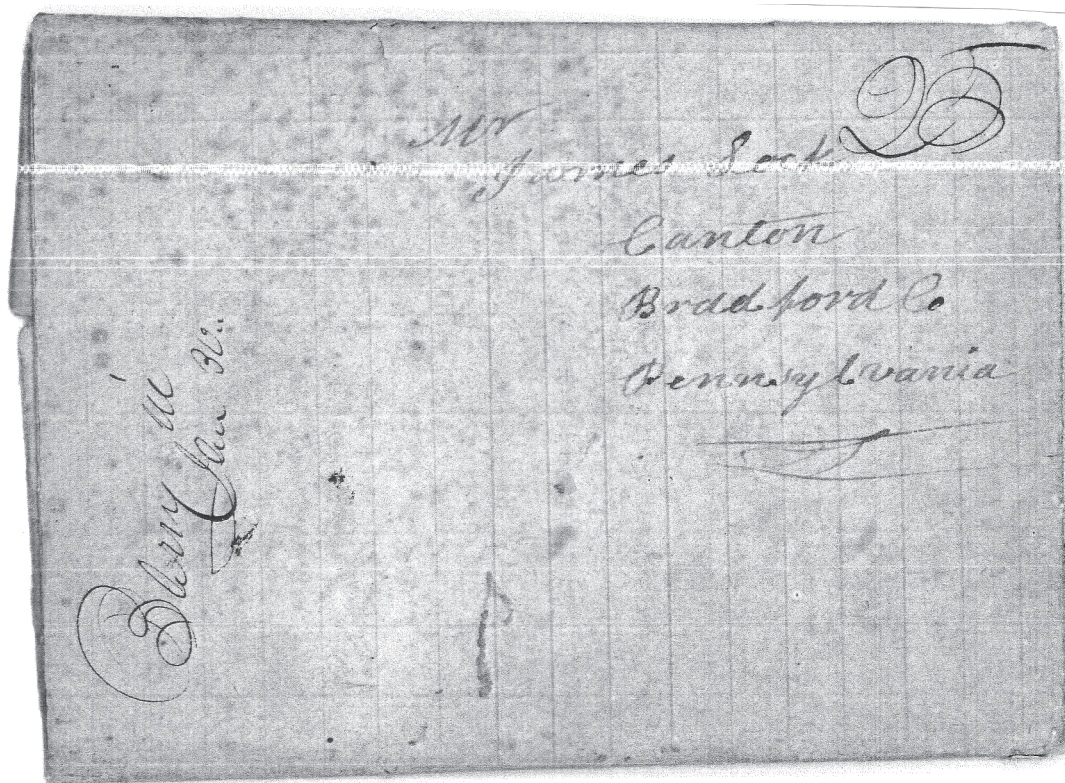 25
Mr
James Lock
Canton
Bradford Co
Pennsylvania
Ill
Jan 30